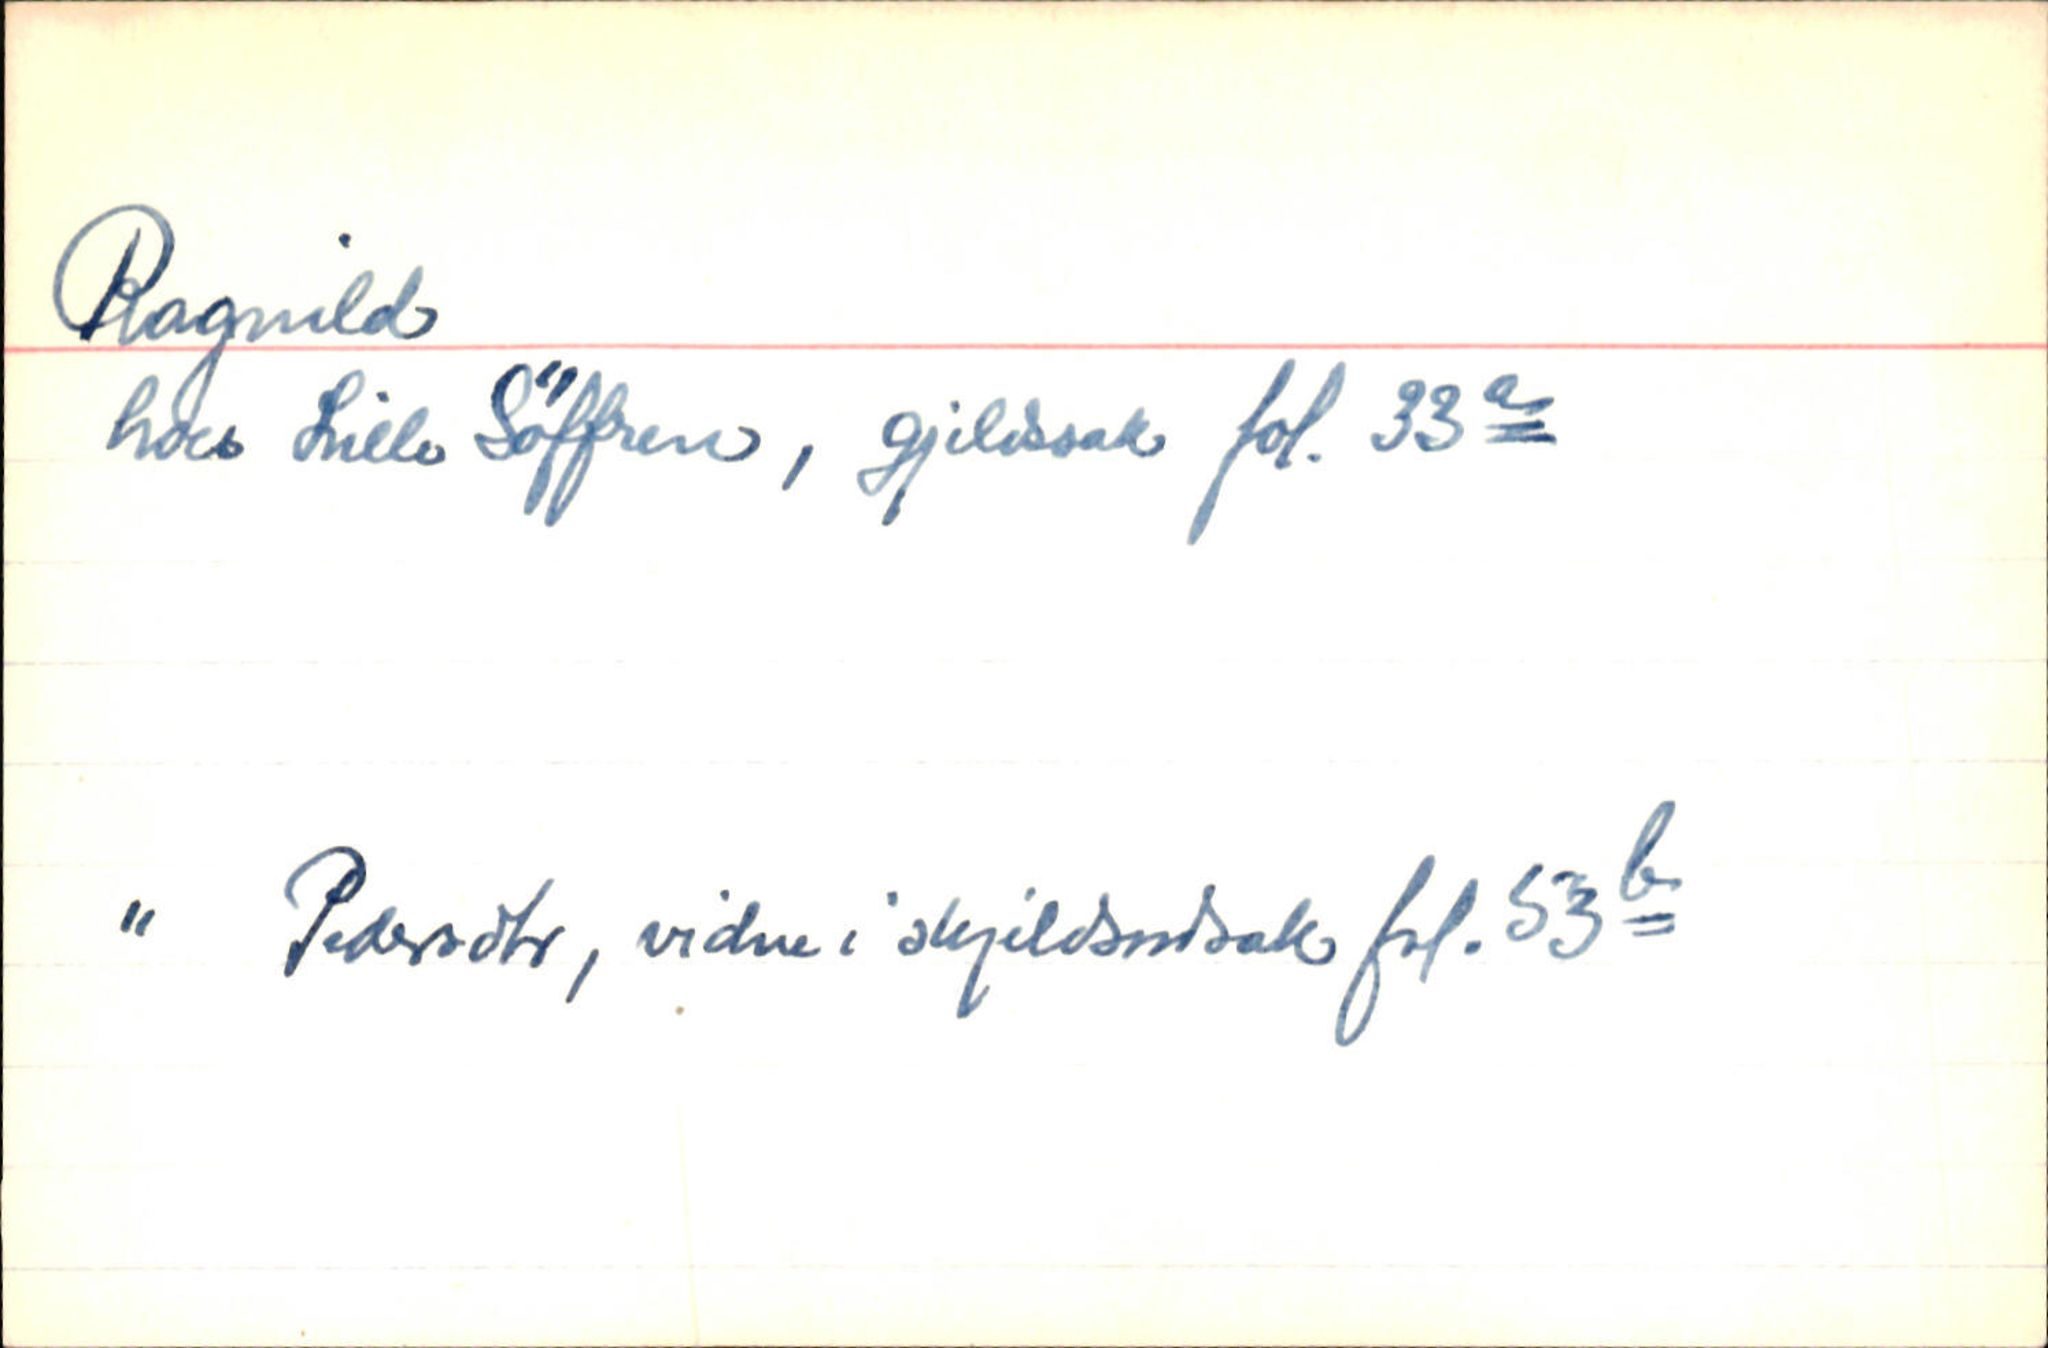 Ragnild
hos Lille Söffren, gjeldssak fol. 33 a
" Pedersdtr, vidne i skjeldsordsak fol. 53 b